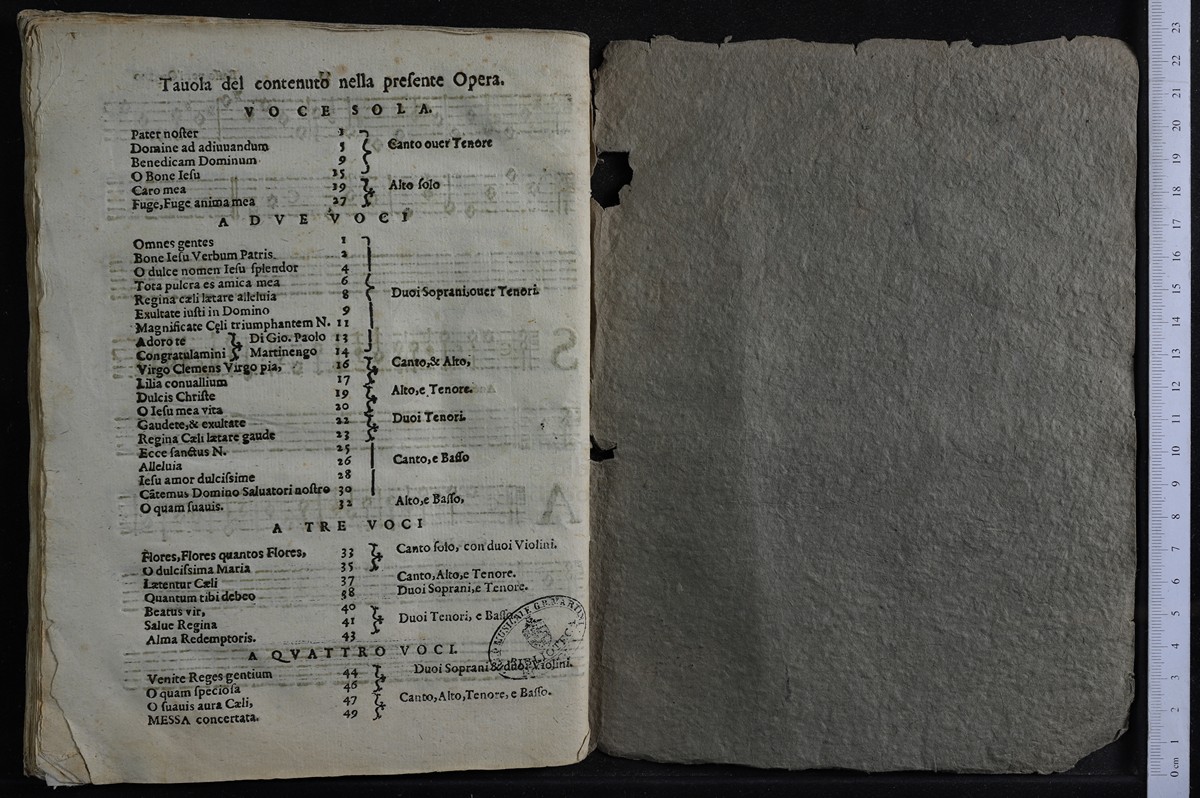 Tauola del contenuto nella preſente Opera.
VOCE SOLA.
Pater noſter 1
Domine ad adiuuandum 5 Canto ouer Tenore
Benedicam Dominum 9
O Bone Ieſu 15
Caro mea 19 Alto ſolo
Fuge, Fuge anima mea 27
A DVE VOCI
Omnes gentes 1
Bone Ieſu Verbum Patris. 2
O dulce nomen Ieſu ſplendor 4
Tota pulcra es amica mea 6
Regina cæli lætare alleluia 8 Duoi Soprani, ouer Tenori.
Exultate iuſti in Domino 9
Magnificate Cęli triumphantem N. 11
Adoro te Di Gio. Paolo 13
Congratulamini Martinengo 14
Virgo Clemens Virgo pia, 16 Canto, & Alto,
Lilia conuallium 17
Dulcis Chriſte 19 Alto, e Tenore.
O Ieſu mea vita 20
Gaudete, & exultate 22 Duoi Tenori.
Regina Cæli lætare gaude 23
Ecce ſanctus N. 25
Alleluia 26 Canto, e Baſſo
Ieſu amor dulciſsime 28
Cātemus Domino Saluatori noſtro 30
O quam ſuauis. 32 Alto, e Baſſo,
A TRE VOCI
Flores, Flores quantos Flores, 33 Canto ſolo, con duoi Violini.
O dulciſsima Maria 35
Lætentur Cæli 37 Canto, Alto, e Tenore.
Quantum tibi debeo 38 Duoi Soprani, e Tenore.
Beatus vir, 40
Salue Regina 41 Duoi Tenori, e Baſſo
Alma Redemptoris. 43
A QVATTRO VOCI.
Venite Reges gentium 44 Duoi Soprani & duoi Violini.
O quam ſpecioſa 46
O ſuauis aura Cæli, 47 Canto, Alto, Tenore, e Baſſo.
MESSA concertata. 49
MUSICALE G.B. MARTINI
BIBLIOTECA
23
22
21
20
19
18
17
16
15
14
13
12
11
10
9
8
7
6
5
4
3
2
1
0 cm